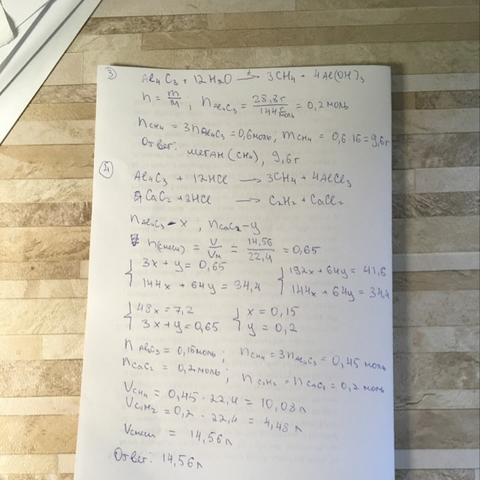 3) Al₄C₃ + 12H₂O →ᵗ 3CH₄ + 4Al(OH)₃
n = m/M ; nAl₄C₃ = 28,8г/144г/моль = 0,2 моль
nCH₄ = 3nAl₄C₃ = 0,6 моль, mCH₄ = 0,6·16 = 9,6г
Ответ: метан (CH₄), 9,6г
4) Al₄C₃ + 12HCl → 3CH₄ + 4AlCl₃
CaC₂ + 2HCl → C₂H₂ + CaCl₂
nAl₄C₃ - x , nCaC₂ - y
n(смеси) = V/Vм = 14,56/22,4 = 0,65
{ 3x + y = 0,65 { 192x + 64y = 41,6
144x + 64y = 34,4 144x + 64y = 34,4
{ 48x = 7,2 { x = 0,15
3x + y = 0,65 y = 0,2
nAl₄C₃ = 0,15 моль ; nCH₄ = 3nAl₄C₃ = 0,45 моль
nCaC₂ = 0,2 моль ; nC₂H₂ = nCaC₂ = 0,2 моль
VCH₄ = 0,45 · 22,4 = 10,08 л
VC₂H₂ = 0,2 · 22,4 = 4,48 л
Vсмеси = 14,56 л
Ответ: 14,56 л